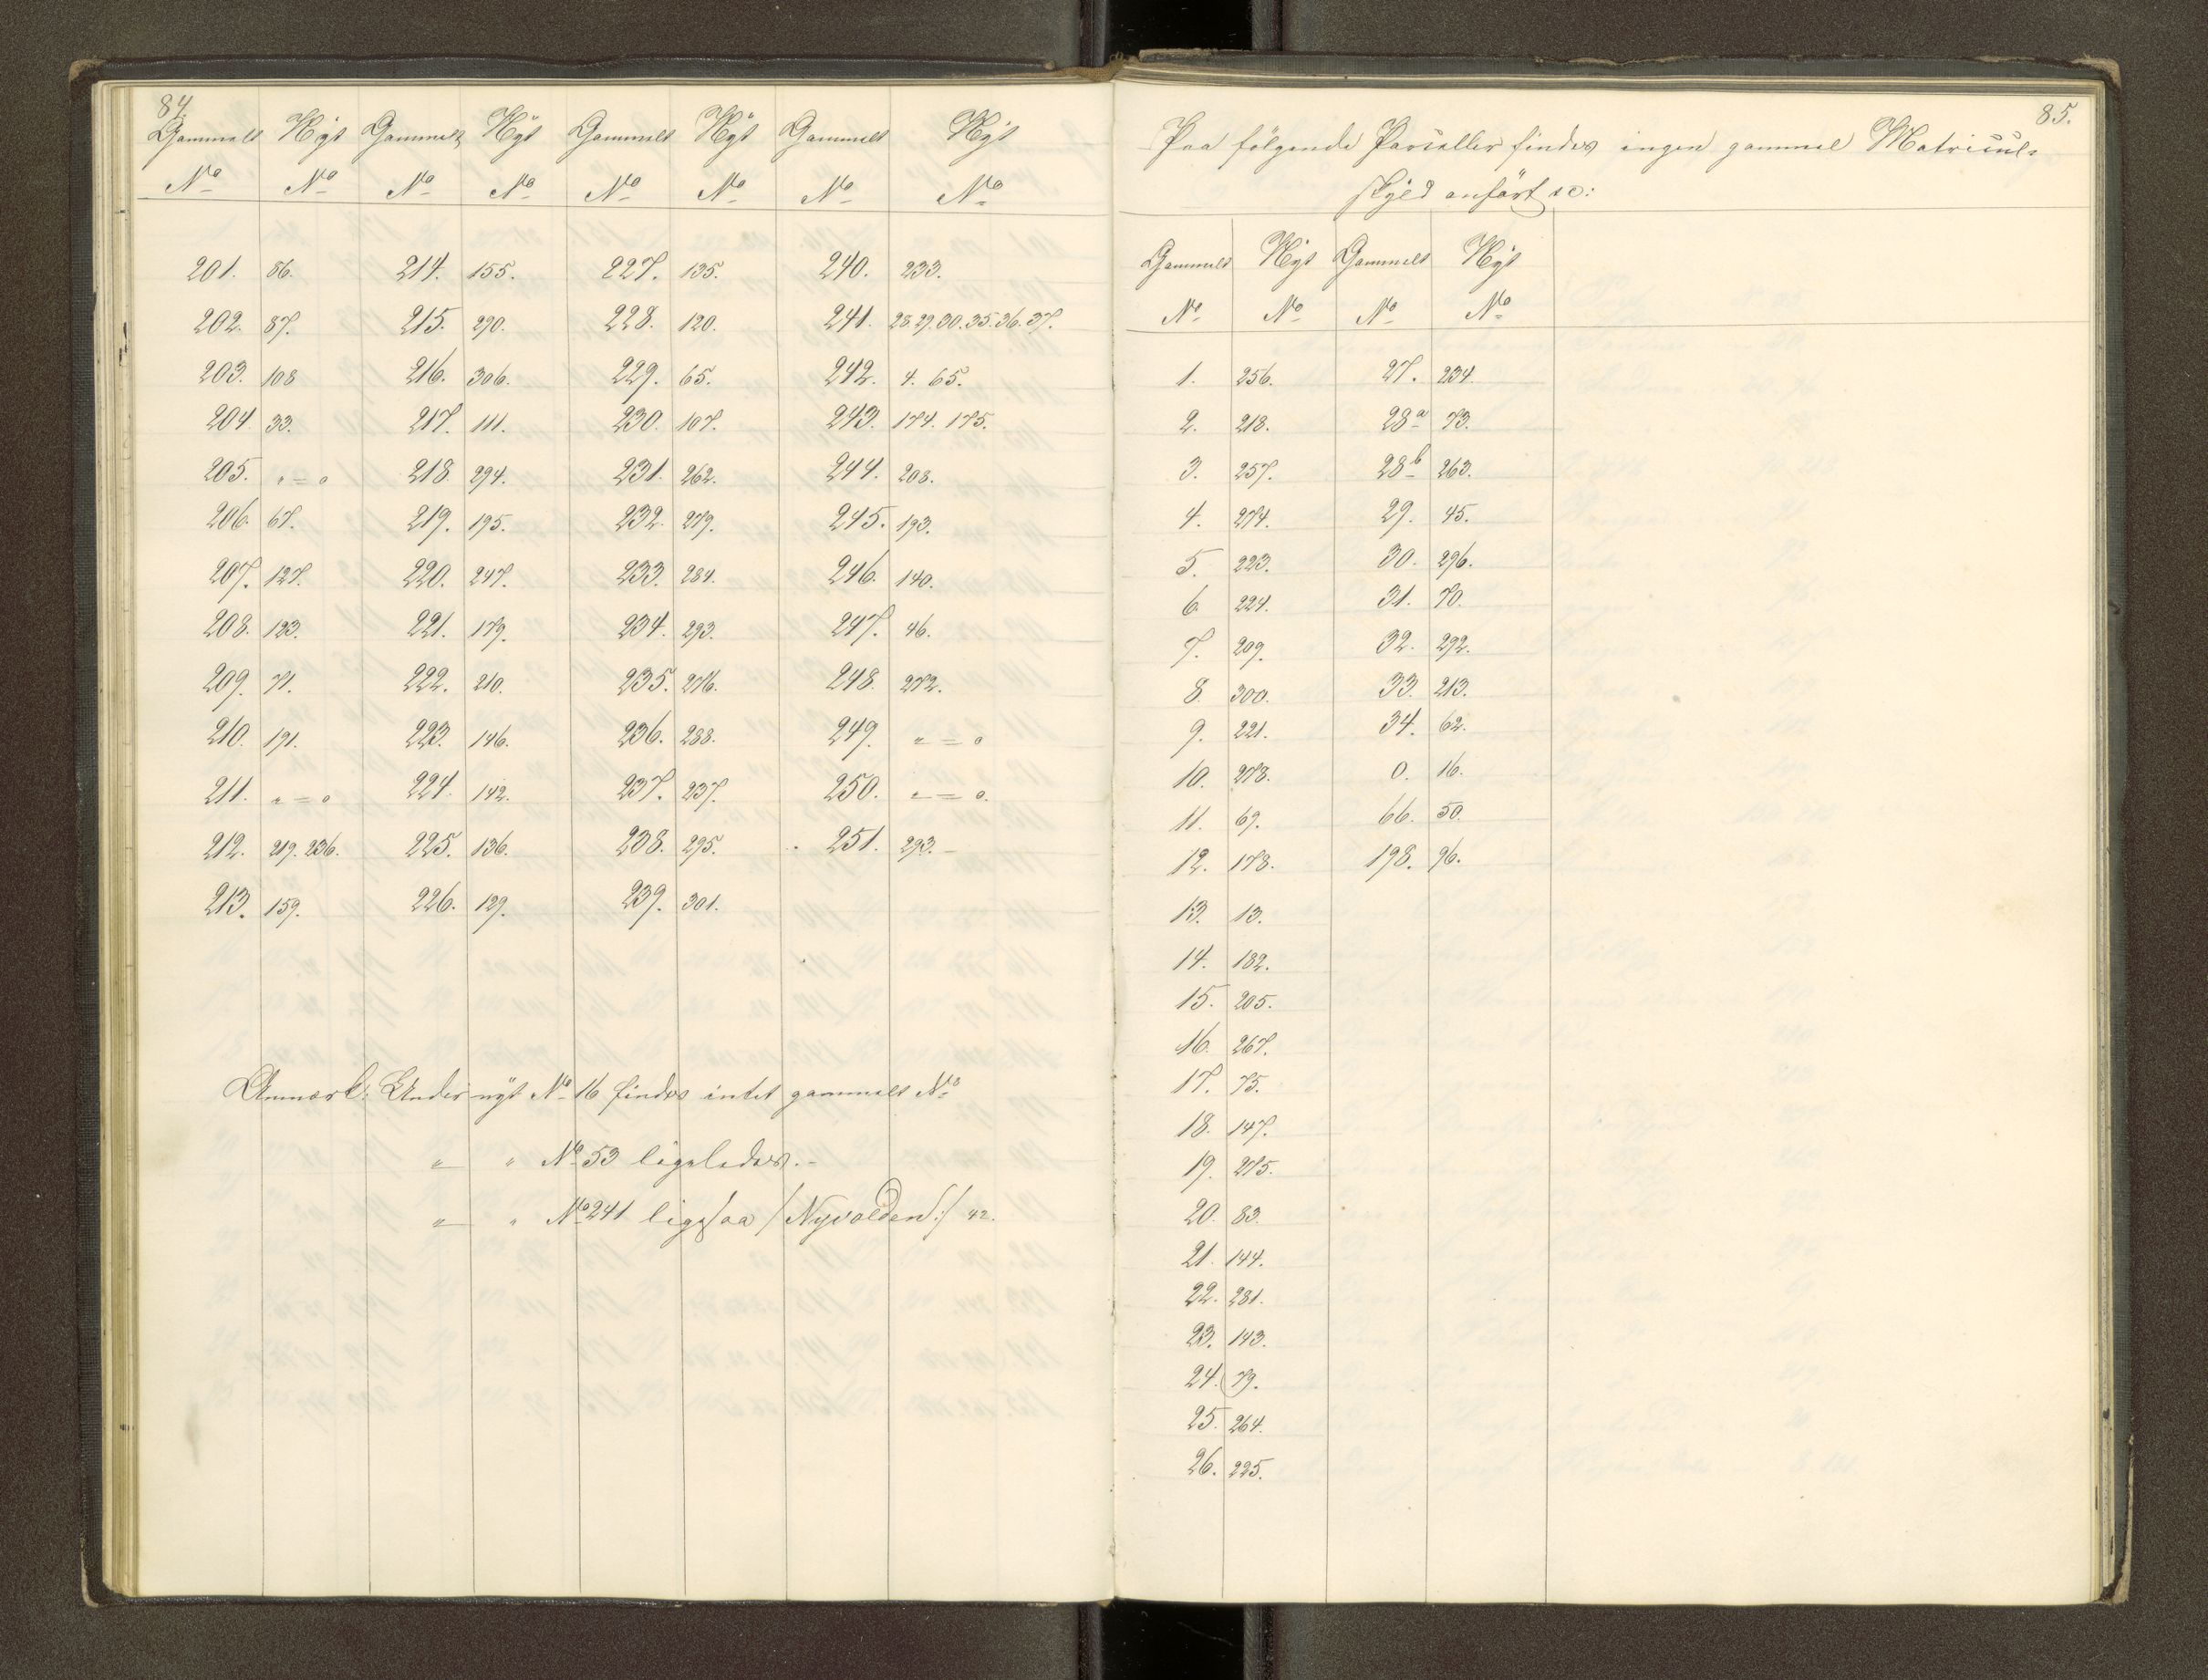 84.
Gammelt Nyt Gammelt Nyt Gammelt Nyt Gammelt Nyt
No No No No No No No No
201. 86. 214. 155. 227. 135. 240. 233.
202. 87. 215. 290. 228. 120. 241. 28. 29. 30. 35. 36. 37.
203. 108 216. 306. 229. 65. 242. 4. 65.
204. 33. 217. 111. 230. 107. 243. 174. 175.
205. " = " 218. 294. 231. 262. 244. 208.
206. 67. 219. 195. 232. 279. 245. 193.
207. 127. 220. 247. 233. 284. 246. 140.
208. 123. 221. 179. 234. 293. 247. 46.
209. 71. 222. 210. 235. 276. 248. 272.
210. 191. 223. 146. 236. 288. 249. " = "
211. " = " 224. 142. 237. 237. 250. " = ".
212. 219. 236. 225. 136. 238. 295. 251. 293.
213. 159. 226. 129. 239. 301.
Anmærk: Under nyt No 16 findes intet gammelt No
" " No 53 ligeledes.-
" " No 241 ligesaa /:Nyvolden:/ 42.
85.
Paa følgende Parceller findes ingen gammel Matricul-
skyld anført sc:
Gammelt Nyt Gammelt Nyt
No No No No
1. 256. 27. 234.
2. 218. 28a 73.
3. 257. 28b 263.
4. 274. 29. 45.
5. 223. 30. 296.
6. 224. 31. 70.
7. 209. 32. 292.
8. 300. 33. 213.
9. 221. 34. 62.
10. 278. 0. 16.
11. 69. 66. 50.
12. 178. 198. 96.
13. 13.
14. 182.
15. 205.
16. 267.
17. 75.
18. 147.
19. 275.
20. 83.
21. 144.
22. 281.
23. 143.
24. 79.
25. 264.
26. 225.